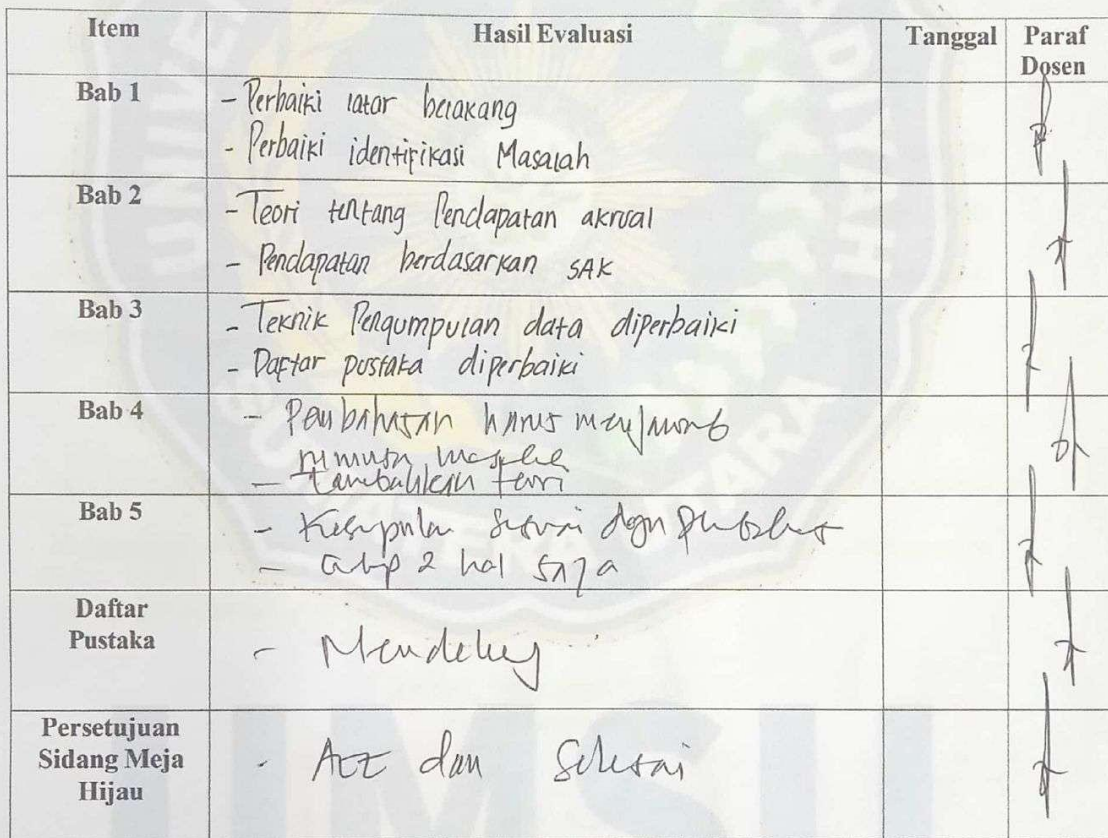 Item Hasil Evaluasi Tanggal Paraf Dosen
Bab 1
- Perbaiki latar belakang
- Perbaiki identifikasi Masalah
Bab 2
- Teori tentang Pendapatan akrual
- Pendapatan berdasarkan SAK
Bab 3
- Teknik Pengumpulan data diperbaiki
- Daftar pustaka diperbaiki
Bab 4
- Pembahasan harus menjawab
rumusan masalah
- tambahkan teori
Bab 5
- Kesimpulan sesuai dgn
- Cukup 2 hal saja
Daftar
Pustaka
- Mendeley
Persetujuan
Sidang Meja
Hijau
- Acc dan Selesai
UMSU